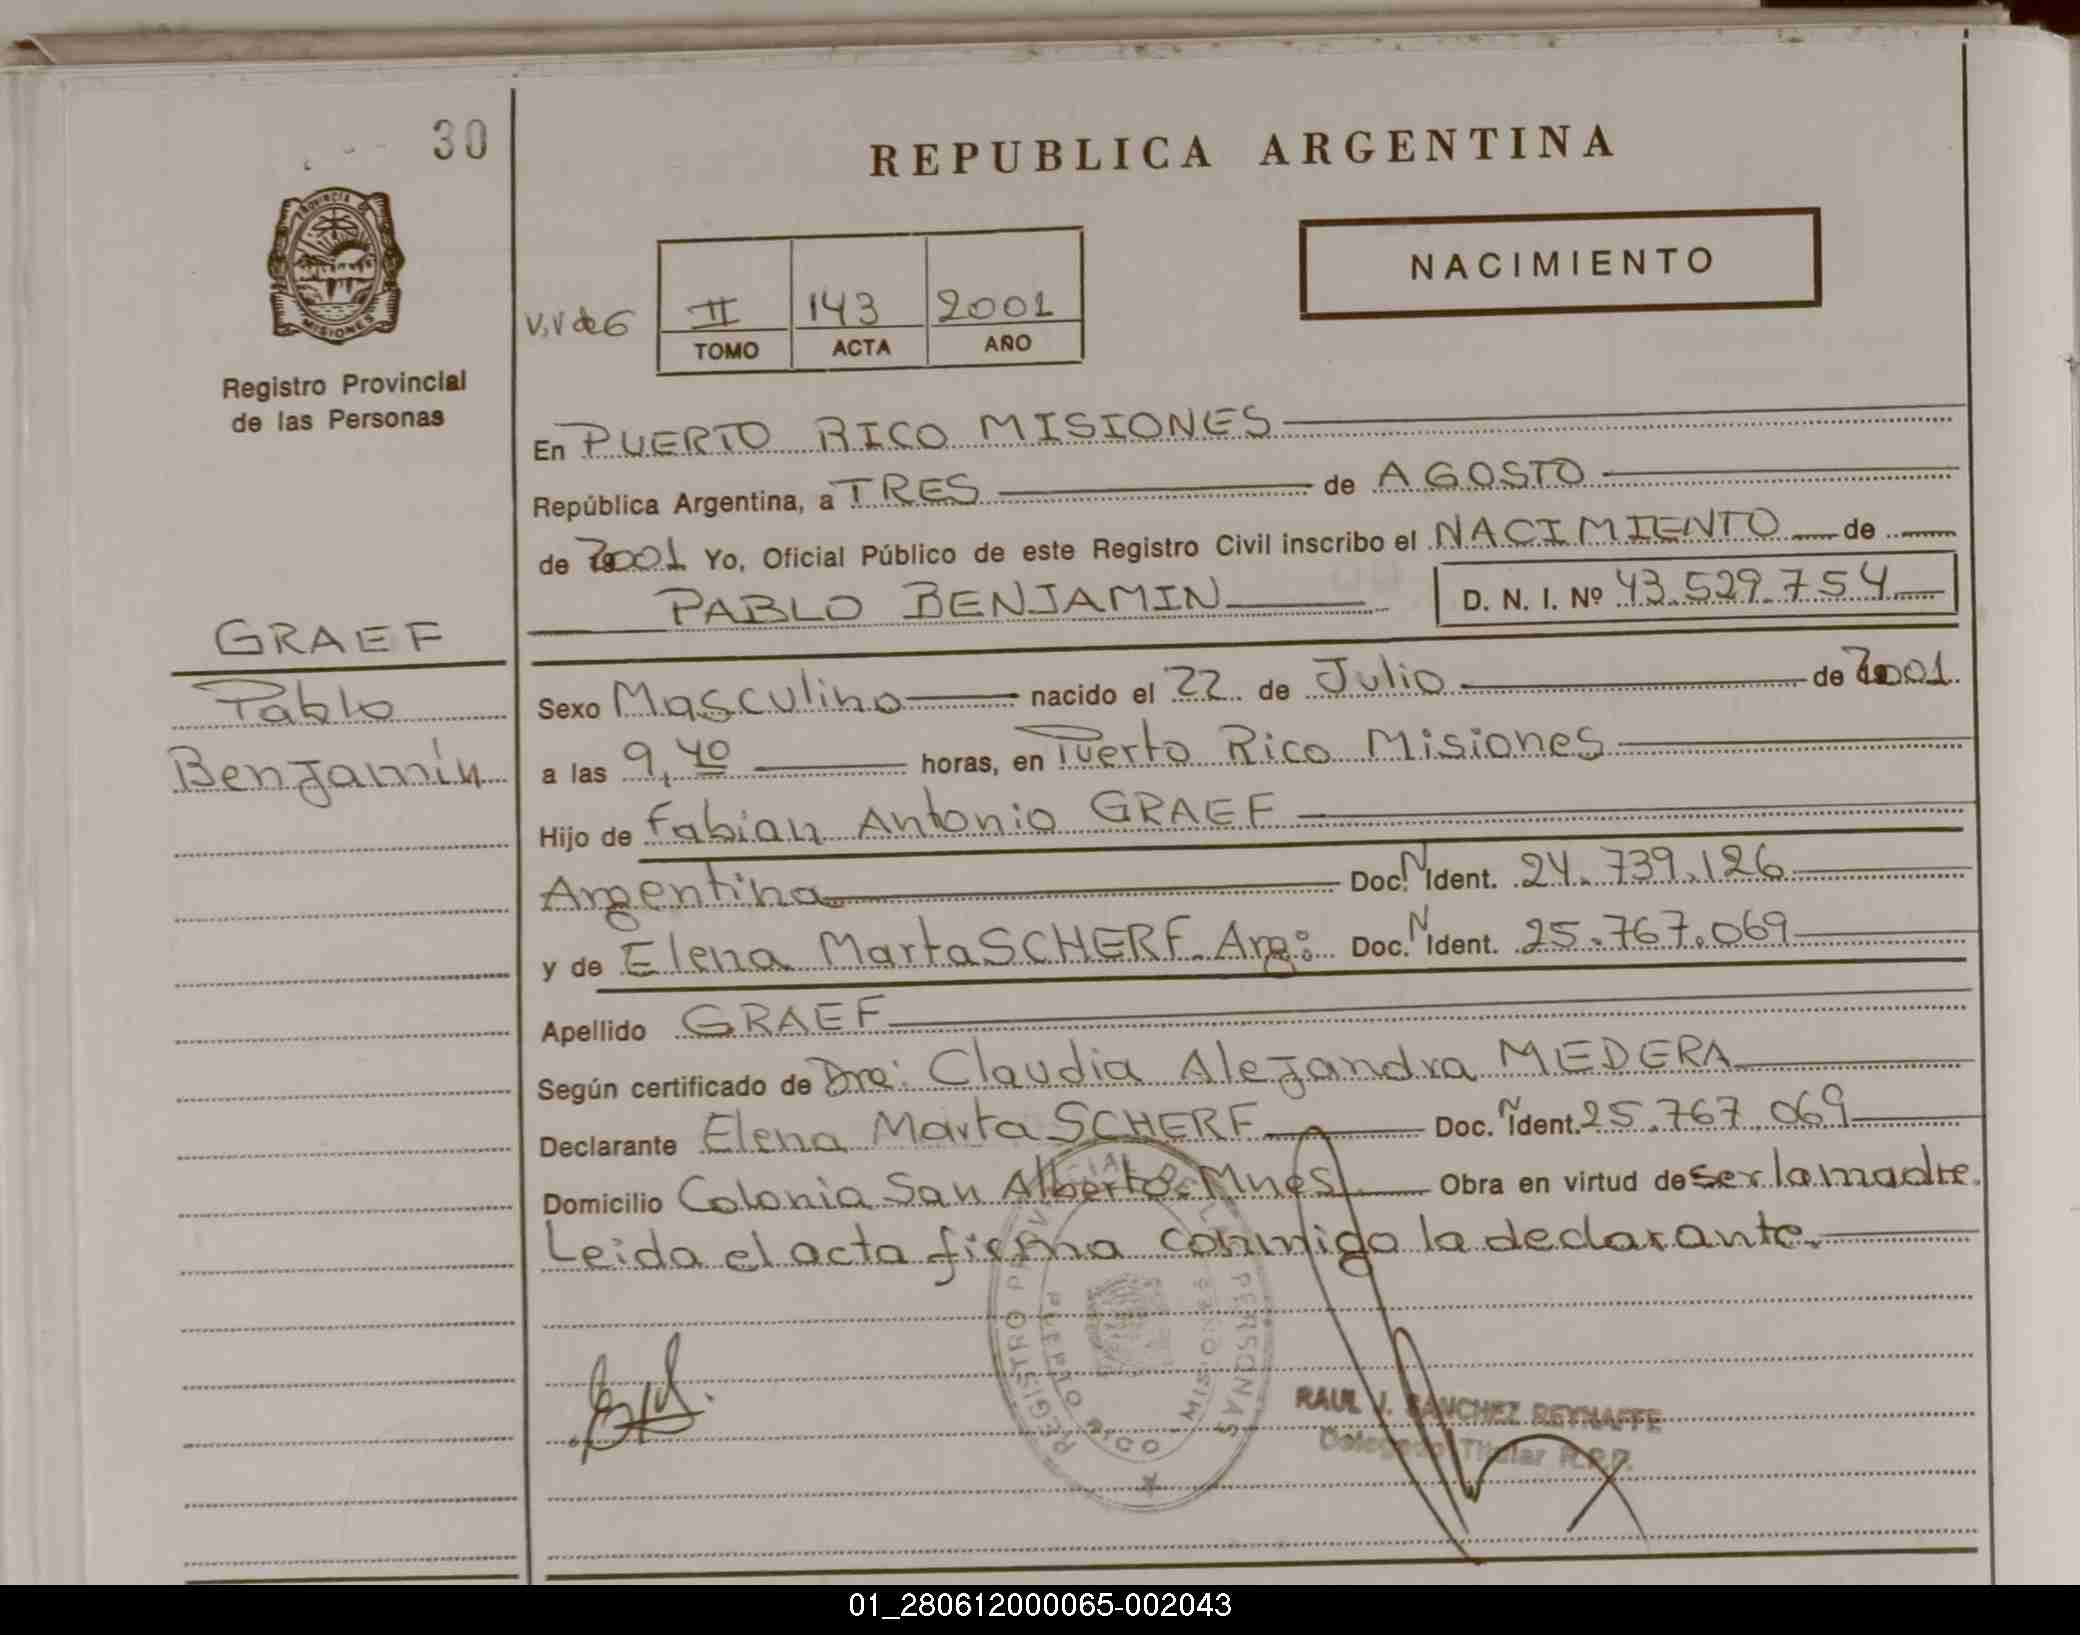 30
REPUBLICA ARGENTINA
PROVINCIA DE
MISIONES
NACIMIENTO
V,V de 6
II 143 2001
TOMO ACTA AÑO
Registro Provincial
de las Personas
En PUERTO RICO MISIONES
República Argentina, a TRES de AGOSTO
de 2001 Yo, Oficial Público de este Registro Civil inscribo el NACIMIENTO de
PABLO BENJAMIN D. N. I. Nº 43.529.754
GRAEF
Pablo
Benjamín
Sexo Masculino nacido el 22 de Julio de 2001.
a las 9,40 horas, en Puerto Rico Misiones
Hijo de Fabian Antonio GRAEF
Argentina Doc. N Ident. 24.739.126
y de Elena Marta SCHERF. Arg: Doc. N Ident. 25.767.069
Apellido GRAEF
Según certificado de Dra: Claudia Alejandra MEDERA
Declarante Elena Marta SCHERF Doc. N Ident. 25.767.069
Domicilio Colonia San Alberto. Mnes Obra en virtud de ser la madre.
Leida el acta firma conmigo la declarante.
REGISTRO PROVINCIAL DE LAS PERSONAS
PUERTO RICO MISIONES
RAUL J. SANCHEZ REYNAFFE
Delegado Titular R.P.P.
01_280612000065-002043